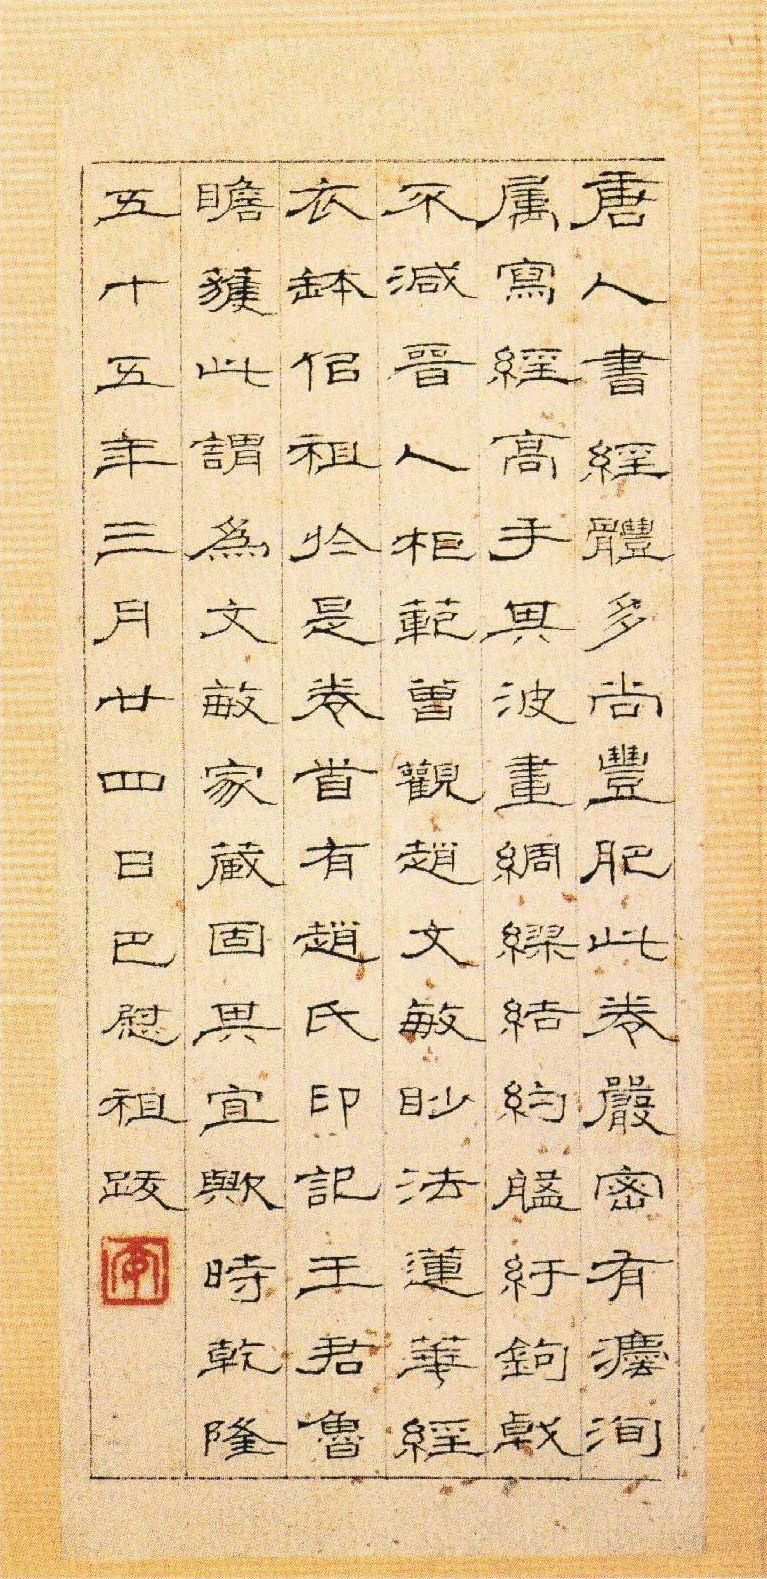 唐人書經體多尚豐肥此卷嚴密有灋洵
属寫經高手其波畫綢繆結約盤紆鉤戟
不減晉人柜範曾觀趙文敏眇法蓮華經
衣鉢佀祖於是卷首有趙氏印記王君魯
瞻獲此謂為文敏家藏固其宜歟時乾隆
五十五年三月廿四日巴慰祖跋